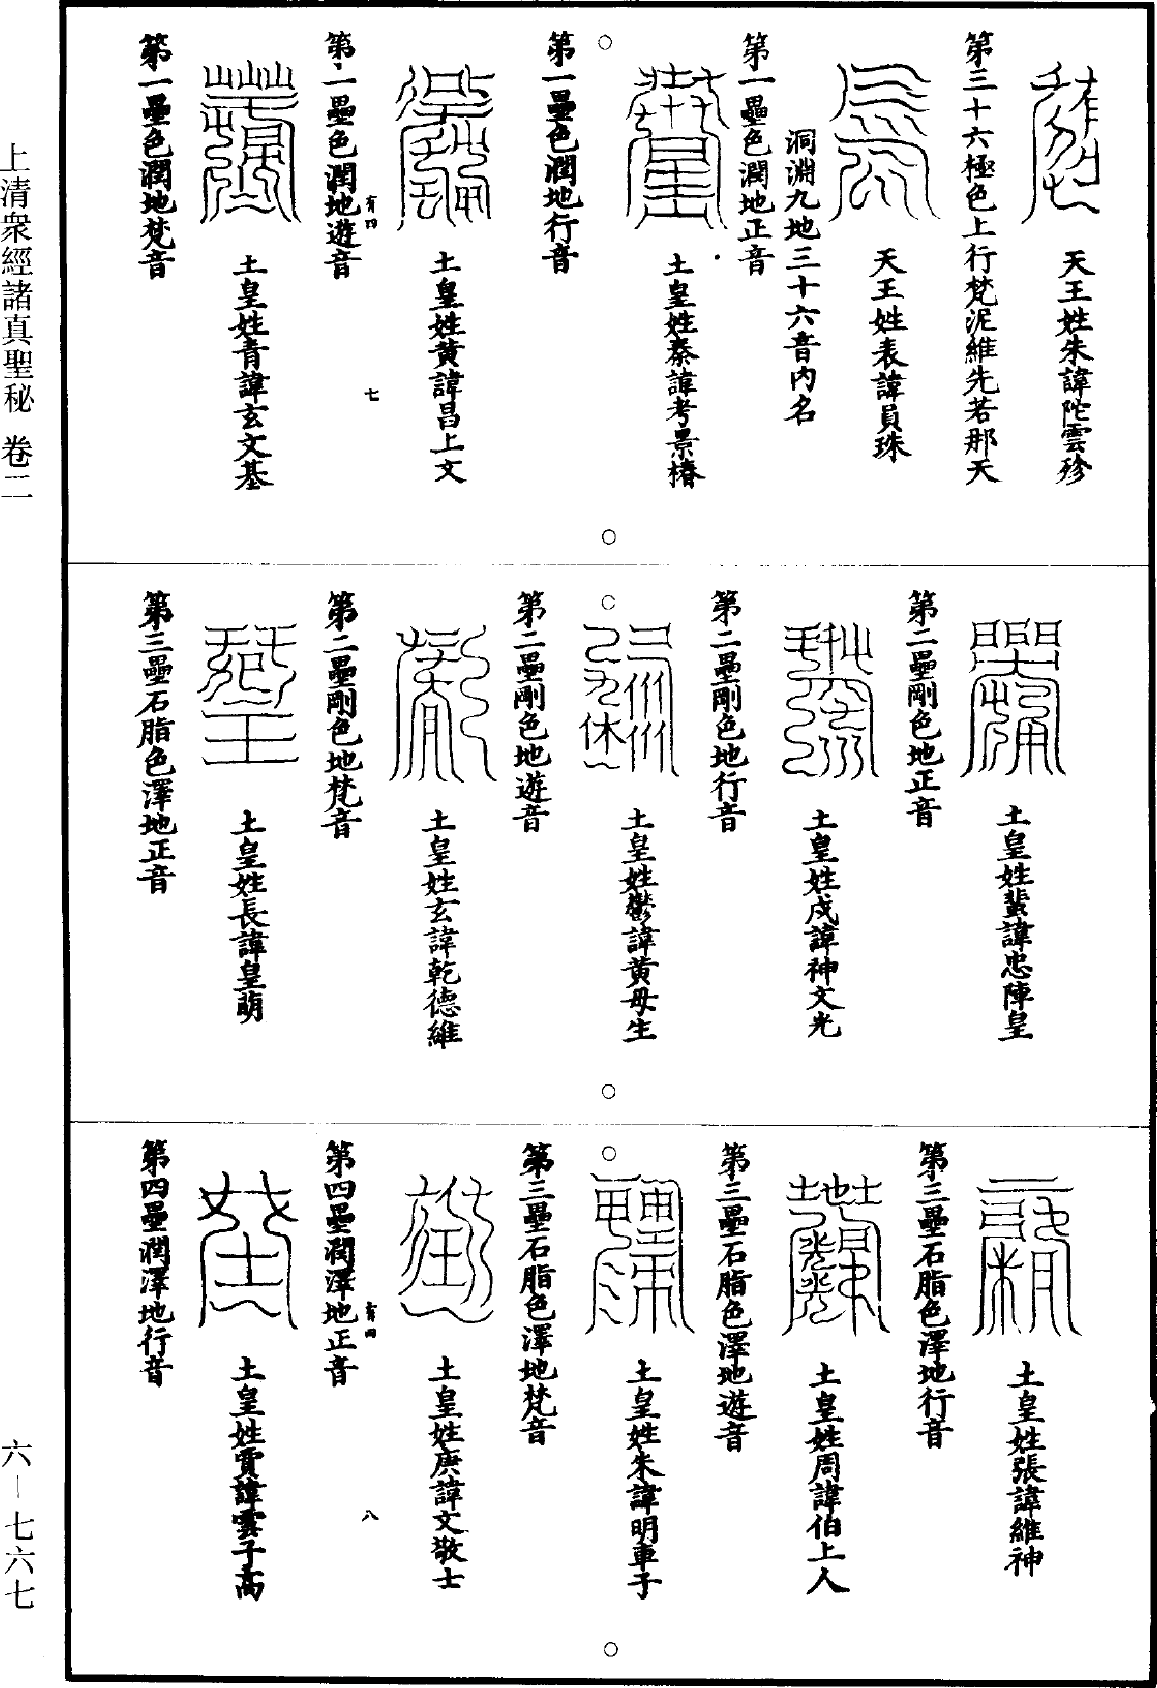 天王姓朱諱陀雲殄
第三十六極色上行梵泥維先若那天
天王姓表諱員珠
洞淵九地三十六音內名
第一壘色潤地正音
土皇姓秦諱考景椿
第一壘色潤地行音
土皇姓黃諱昌上文
有四 七
第一壘色潤地遊音
土皇姓青諱玄文基
第一壘色潤地梵音
第二壘剛色地正音
土皇姓蜚諱忠陣皇
第二壘剛色地行音
土皇姓戍諱神文光
第二壘剛色地遊音
土皇姓鬱諱黃母生
第二壘剛色地梵音
土皇姓玄諱乾德維
第三壘石脂色澤地正音
土皇姓長諱皇萌
第三壘石脂色澤地行音
土皇姓張諱維神
第三壘石脂色澤地遊音
土皇姓周諱伯上人
第三壘石脂色澤地梵音
土皇姓朱諱明車子
第四壘潤澤地正音
有四 八
土皇姓庚諱文敬士
第四壘潤澤地行音
土皇姓賈諱雲子高
上清眾經諸真聖秘 卷三
六—七六七